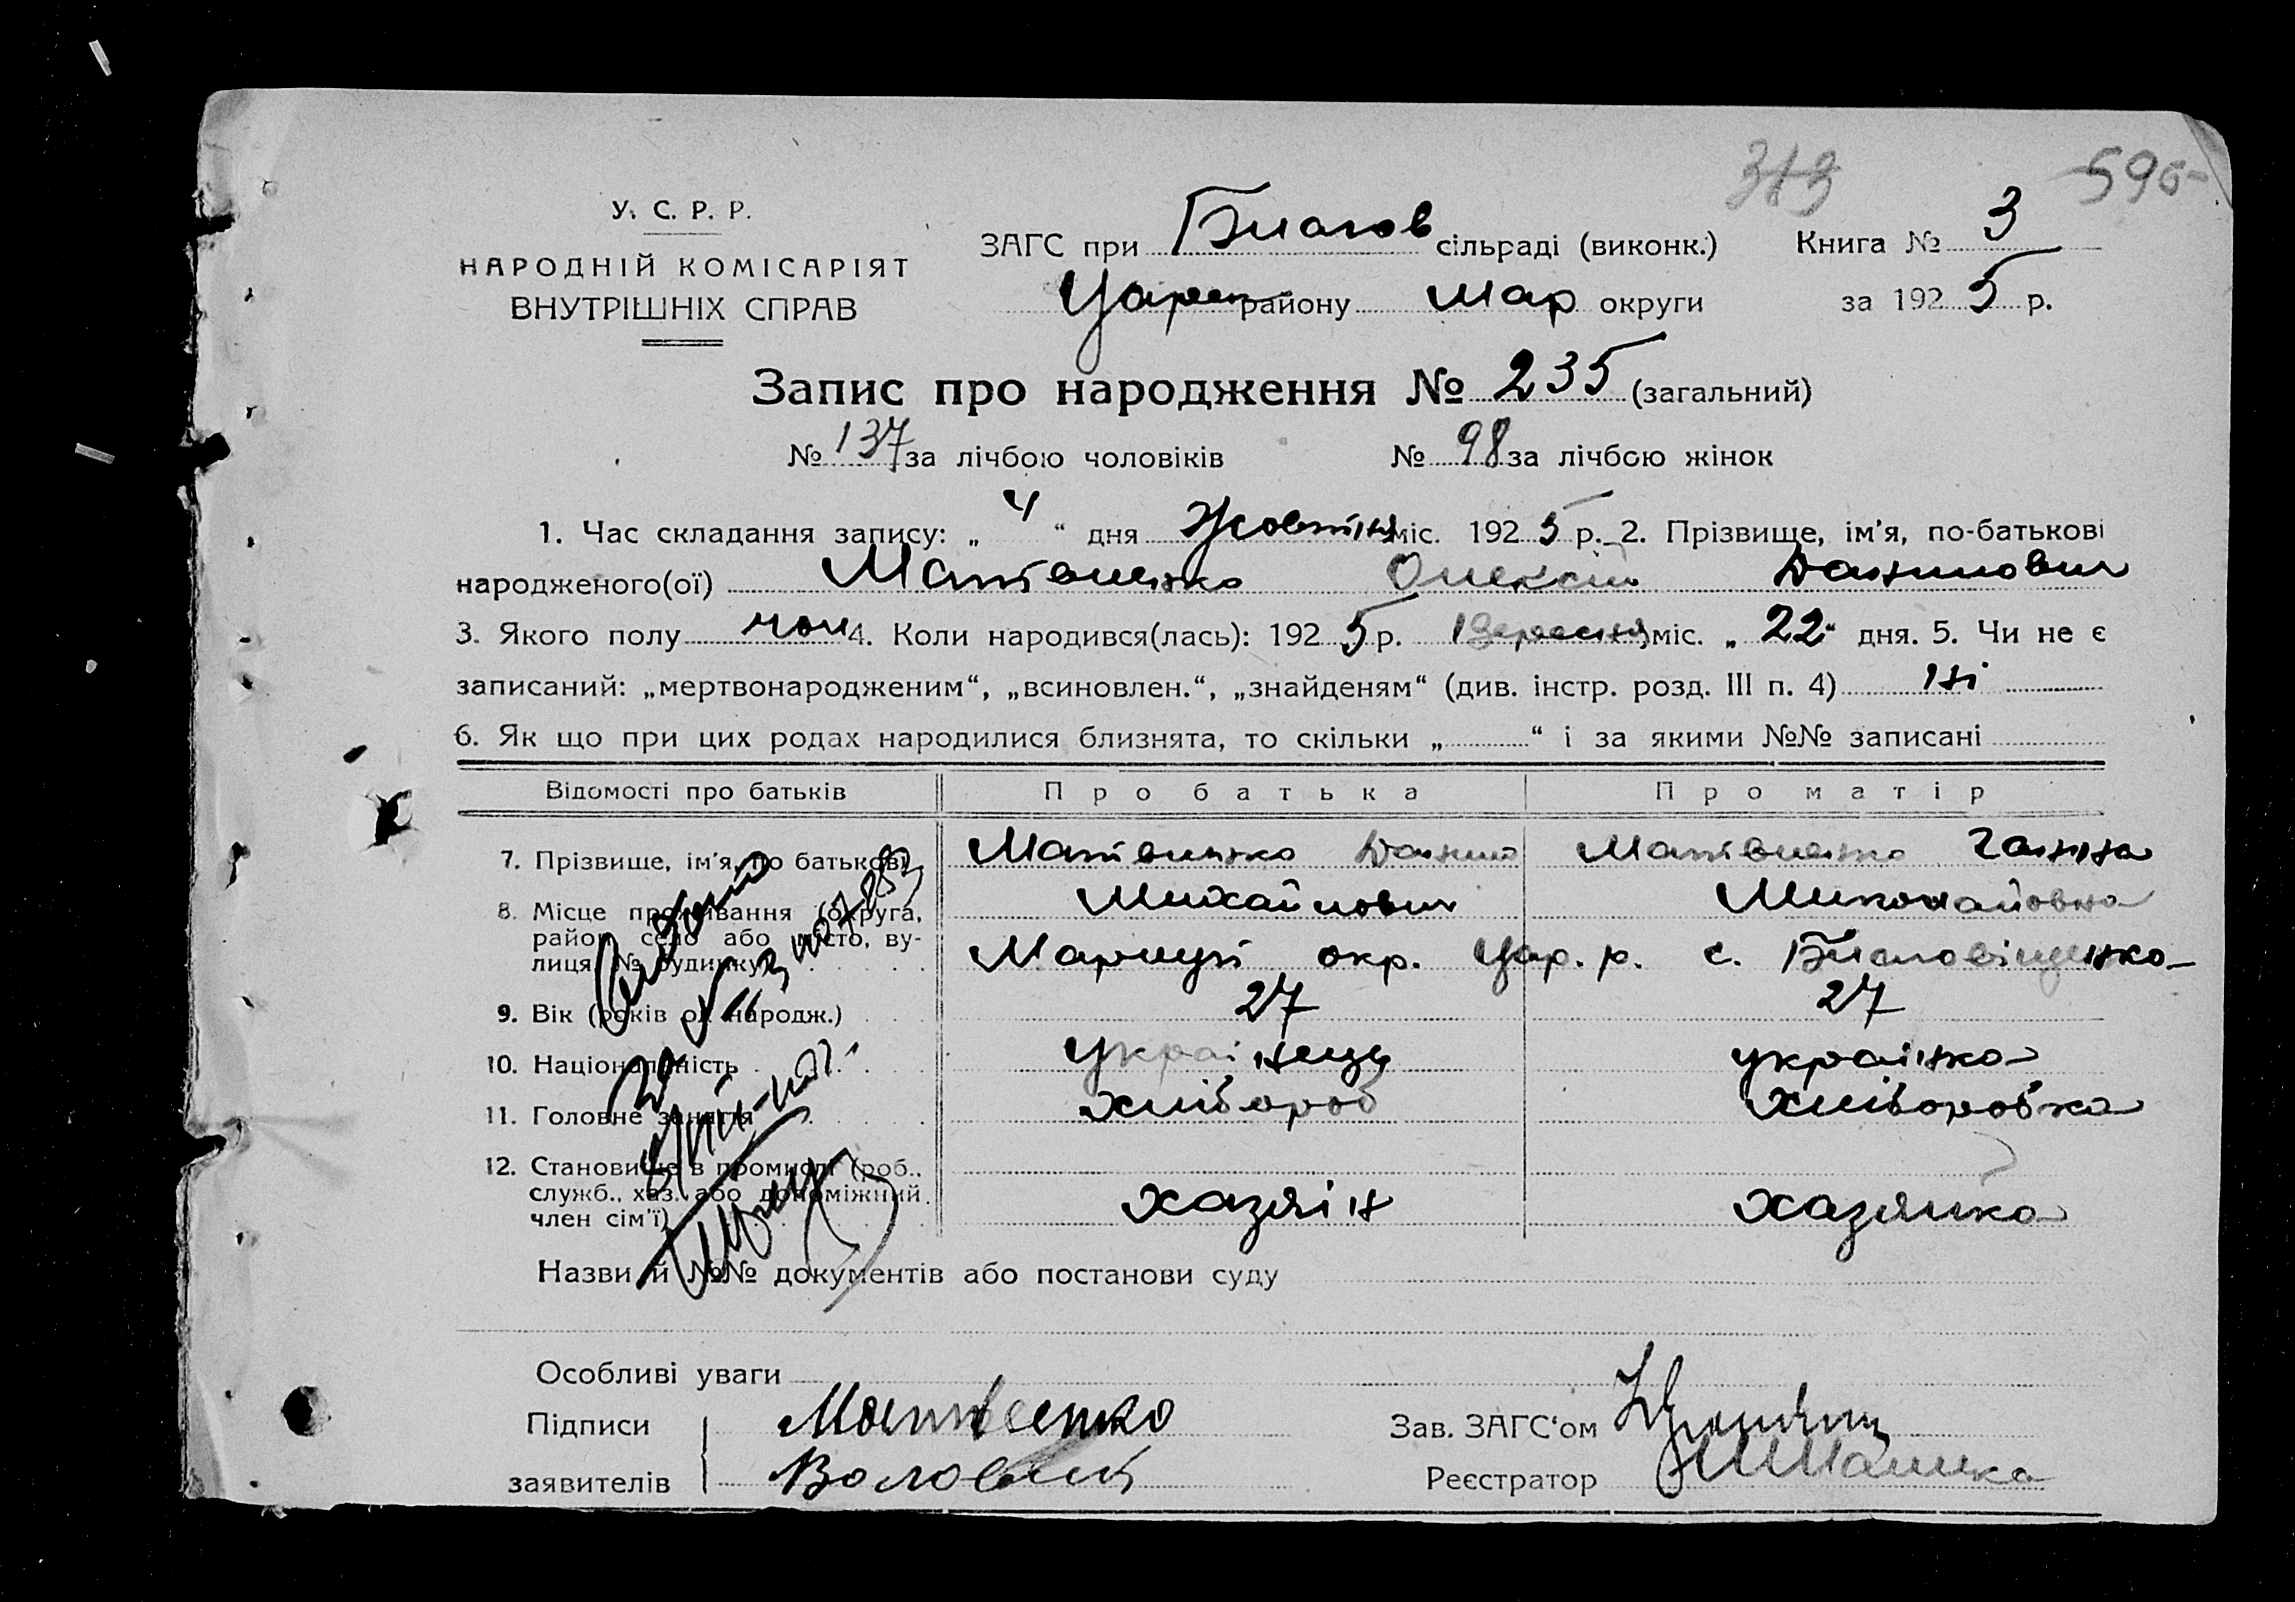 595
У. С. Р. Р.
НАРОДНІЙ КОМІСАРІЯТ
ВНУТРІШНІХ СПРАВ
ЗАГС при Благов сільраді (виконк.) Книга № 3
Царек району Мар округи за 1925 р.
Запис про народження № 235 (загальний)
№ 137 за лічбою чоловіків № 98 за лічбою жінок
1. Час складання запису: „4“ дня Жовтня міс. 1925 р. 2. Прізвище, ім'я, по-батькові
народженого(ої) Матвієнко Олексій Данилович
3. Якого полу чол 4. Коли народився(лась): 1925 р. Вересня міс. „22“ дня. 5. Чи не є
записаний: „мертвонародженим“, „всиновлен.“, „знайденям“ (див. інстр. розд. III п. 4) ні
6. Як що при цих родах народилися близнята, то скільки „ “ і за якими №№ записані
Відомості про батьків Про батька Про матір
7. Прізвище, ім'я, по батькові Матвієнко Данило Матвієнко Ганна
Михайлович Миколайовна
8. Місце проживання (округа, район, село або місто, вулиця, № будинку) Маріуп окр. Цар. р. с. Благовіщенка
9. Вік (років од народж.) 27 27
10. Національність українець українка
11. Головне заняття хлібороб хліборобка
12. Становище в промислі (роб., служб., хаз. або допоміжний член сім'ї) хазяїн хазяйка
Назви й №№ документів або постанови суду
Особливі уваги
Підписи заявителів Матвеенко
Зав. ЗАГС'ом
Реєстратор